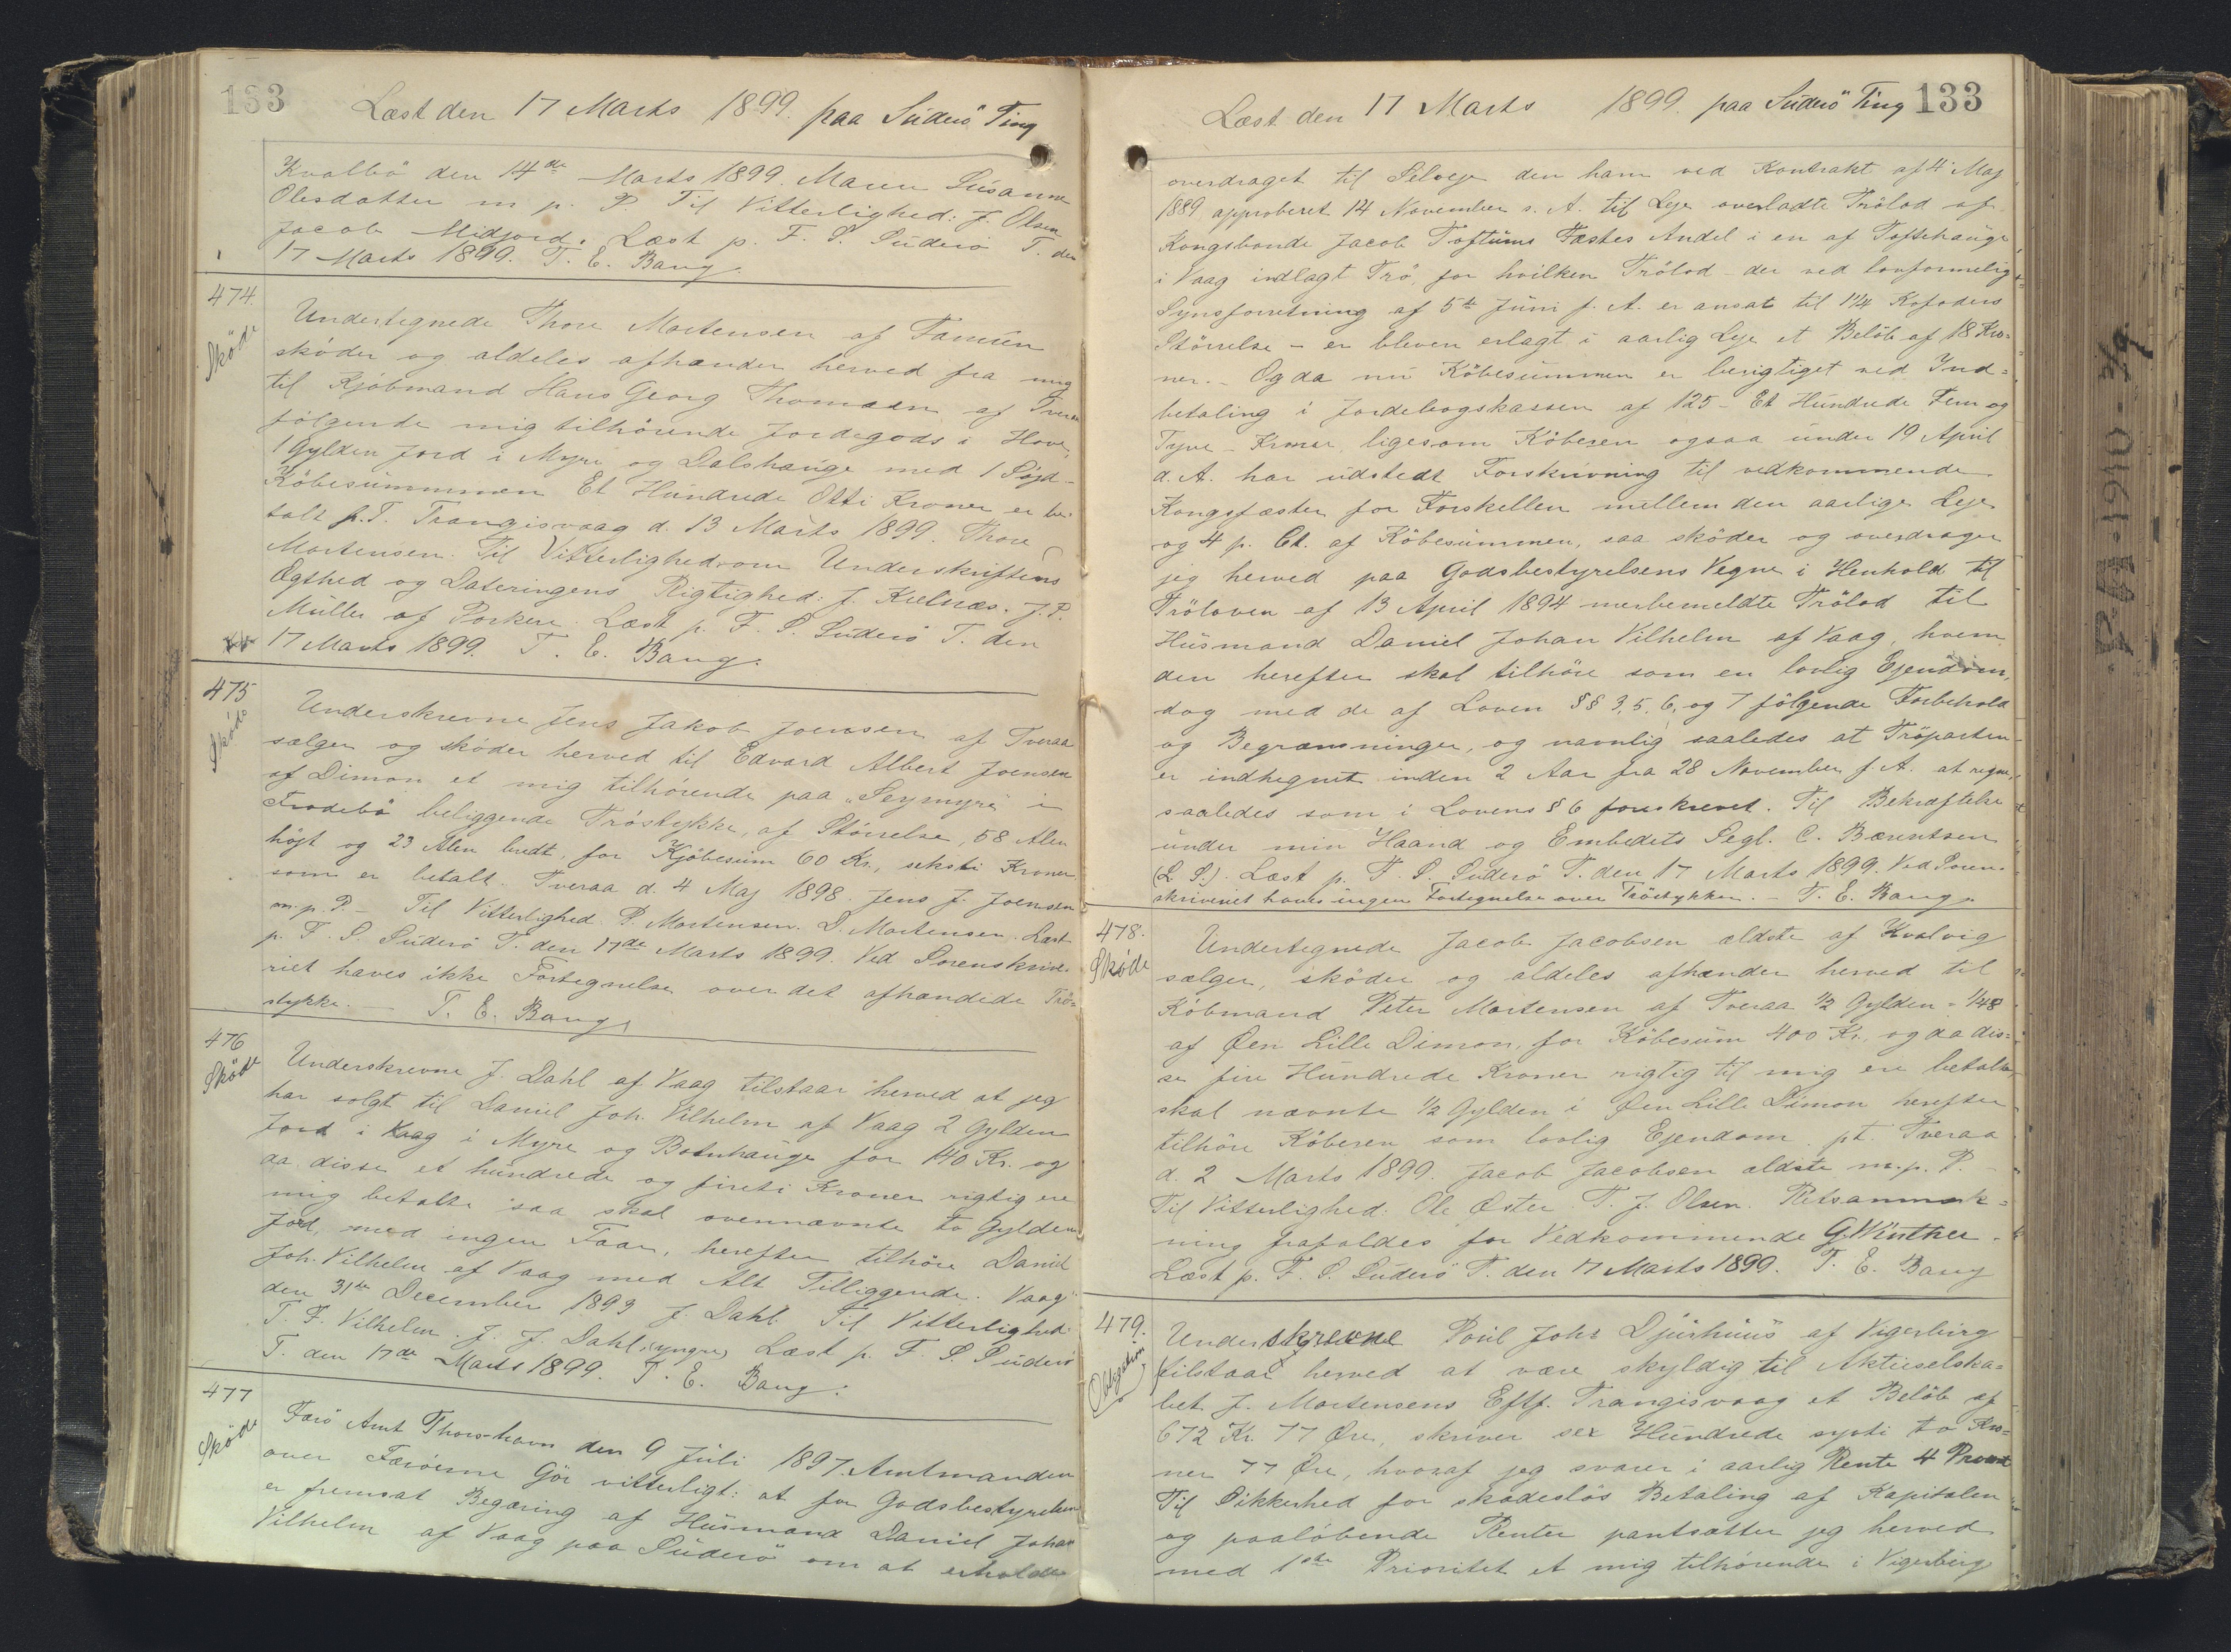 133
Læst den 17 Marts 1899. paa Süderö Ting
Kvalbö den 14de Marts 1899. Maren Susanne
Olesdatter m. p. P. Til Vitterlighed: J. Olsen
Jacob Midjord. Læst p. F. S. Süderö T. den
17 Marts 1899. T. E. Bang.
474.
Sköde
Undertegnede Thore Mortensen af Famien
sköder og aldeles afhænder herved fra mig
til Kjöbmand Hans Georg Thomsen af Tveraa
fölgende mig tilhörende Jordegods i Hove,
1 Gylden Jord i Myre og Dalshauge med 1 Söjd-
Köbesummen Et Hundrede Otti Kroner er be-
talt p.T. Trangisvaag d. 13 Marts 1899. Thore
Mortensen. Til Vitterlighed om Underskriftens
Ægthed og Dateringens Rigtighed: J. Kielnæs. J. P.
Müller af Porkere. Læst p. F. S. Süderö T. den
17 Marts 1899. T. E. Bang.
475
Sköde
Underskrevne Jens Jakob Joensen af Tveraa
sælger og sköder herved til Edvard Albert Joensen
af Dimon et mig tilhörende paa „Seymyre" i
Frodebö beliggende Tröstykke, af Störrelse, 58 Alen
höjt og 23 Alen bredt, for Kjöbesum 60 Kr., seksti Kroner
som er betalt. Tveraa d. 4 Maj 1898. Jens J. Joensen
m. p. P. – Til Vitterlighed. P. Mortensen. D. Mortensen. Læst
p. F. S. Süderö T. den 17de Marts 1899. Ved Sorenskrive-
riet haves ikke Fortegnelse over det afhændede Trö-
stykke. – T. E. Bang.
476
Sköde
Underskrevne J. Dahl af Vaag tilstaar herved at jeg
har solgt til Daniel Joh. Vilhelm af Vaag 2 Gylden
Jord i Vaag i Myre og Botnhauge for 140 Kr. og
da disse et hundrede og fireti Kroner rigtig ere
mig betalte saa skal ovennævnte to Gylden
Jord, med ingen Faar, herefter tilhöre Daniel
Joh. Vilhelm af Vaag med Alt Tilliggende. Vaag
den 31te December 1893 J. Dahl. Til Vitterlighed:
T. F. Vilhelm. J. J. Dahl (yngre) Læst p. F. S. Süderö
T. den 17de Marts 1899. T. E. Bang.
477
Sköde
Færö Amt Thorshavn den 9 Juli 1897. Amtmanden
over Færöerne Gör vitterligt: at for Godsbestyrelsen
er fremsat Begæring af Husmand Daniel Johan
Vilhelm af Vaag paa Süderö om at erholde
Læst den 17 Marts 1899. paa Süderö Ting 133
overdraget til Selveje den ham ved Kontrakt af 4 Maj
1889 approberet 14 November s. A. til Leje overladte Trölod af
Kongsbonde Jacob Toftums Fæstes Andel i en af Toftehauge
i Vaag indlagt Trö, for hvilken Trölod – der ved lovformelig
Synsforretning af 5te Juni f. A. er ansat til 1¼ Kofoders
Störrelse – er bleven erlagt i aarlig Leje et Belöb af 18 Kro-
ner. – Og da nu Köbesummen er berigtiget ved Ind-
betaling i Jordebogskassen af 125 – Et Hundrede Fem og
Tyve – Kroner, ligesom Köberen ogsaa under 19 April
d. A. har udstedt Forskrivning til vedkommende
Kongsfæster for Forskellen mellem den aarlige Leje
og 4 p. Ct. af Köbesummen, saa sköder og overdrager
jeg herved paa Godsbestyrelsens Vegne i Henhold til
Tröloven af 13 April 1894 merbemeldte Trölod til
Husmand Daniel Johan Vilhelm af Vaag, hvem
den herefter skal tilhöre som en lovlig Ejendom,
dog med de af Loven §§ 3, 5, 6, og 7 fölgende Forbehold
og Begrænsninger, og navnlig saaledes at Tröparten
er indhegnet inden 2 Aar fra 28 November f. A. at regne,
saaledes som i Lovens § 6 foreskrevet. Til Bekræftelse
under min Haand og Embedets Segl. C. Bærentsen
(L. S.). Læst p. F. S. Süderö T. den 17 Marts 1899. Ved Soren-
skriveriet haves ingen Fortegnelse over Tröstykker. – T. E. Bang.
478.
Sköde
Undertegnede Jacob Jacobsen ældste af Kvalvig
sælger, sköder og aldeles afhænder herved til
Köbmand Peter Mortensen af Tveraa ½ Gylden = 1/48
af Øen Lille Dimon, for Köbesum 400 Kr., og da dis-
se fire Hundrede Kroner rigtig til mig ere betalte
skal nævnte ½ Gylden i Øen Lille Dimon herefter
tilhöre Köberen som lovlig Ejendom. pt. Tveraa
d. 2 Marts 1899. Jacob Jacobsen ældste m. p. P.
Til Vitterlighed: Ole Øster T. J. Olsen. Retsanmærk-
ning frafaldes for Vedkommende G. Winther.
Læst p. F. S. Süderö T. den 17 Marts 1899. T. E. Bang
479.
Obligation
Underskrevne Poul Johs Djurhuus af Vigerbirg
tilstaar herved at være skyldig til Aktieselska-
bet J. Mortensens Eftf. Trangisvaag et Belöb af
672 Kr. 77 Øre, skriver sex Hundrede sytti to Kro-
ner 77 Øre, hvoraf jeg svarer i aarlig Rente 4 Procent
Til Sikkerhed for skadeslös Betaling af Kapitalen
og paalöbende Renter pantsætter jeg herved
med 1ste Prioritet et mig tilhörende i Vigerbirg